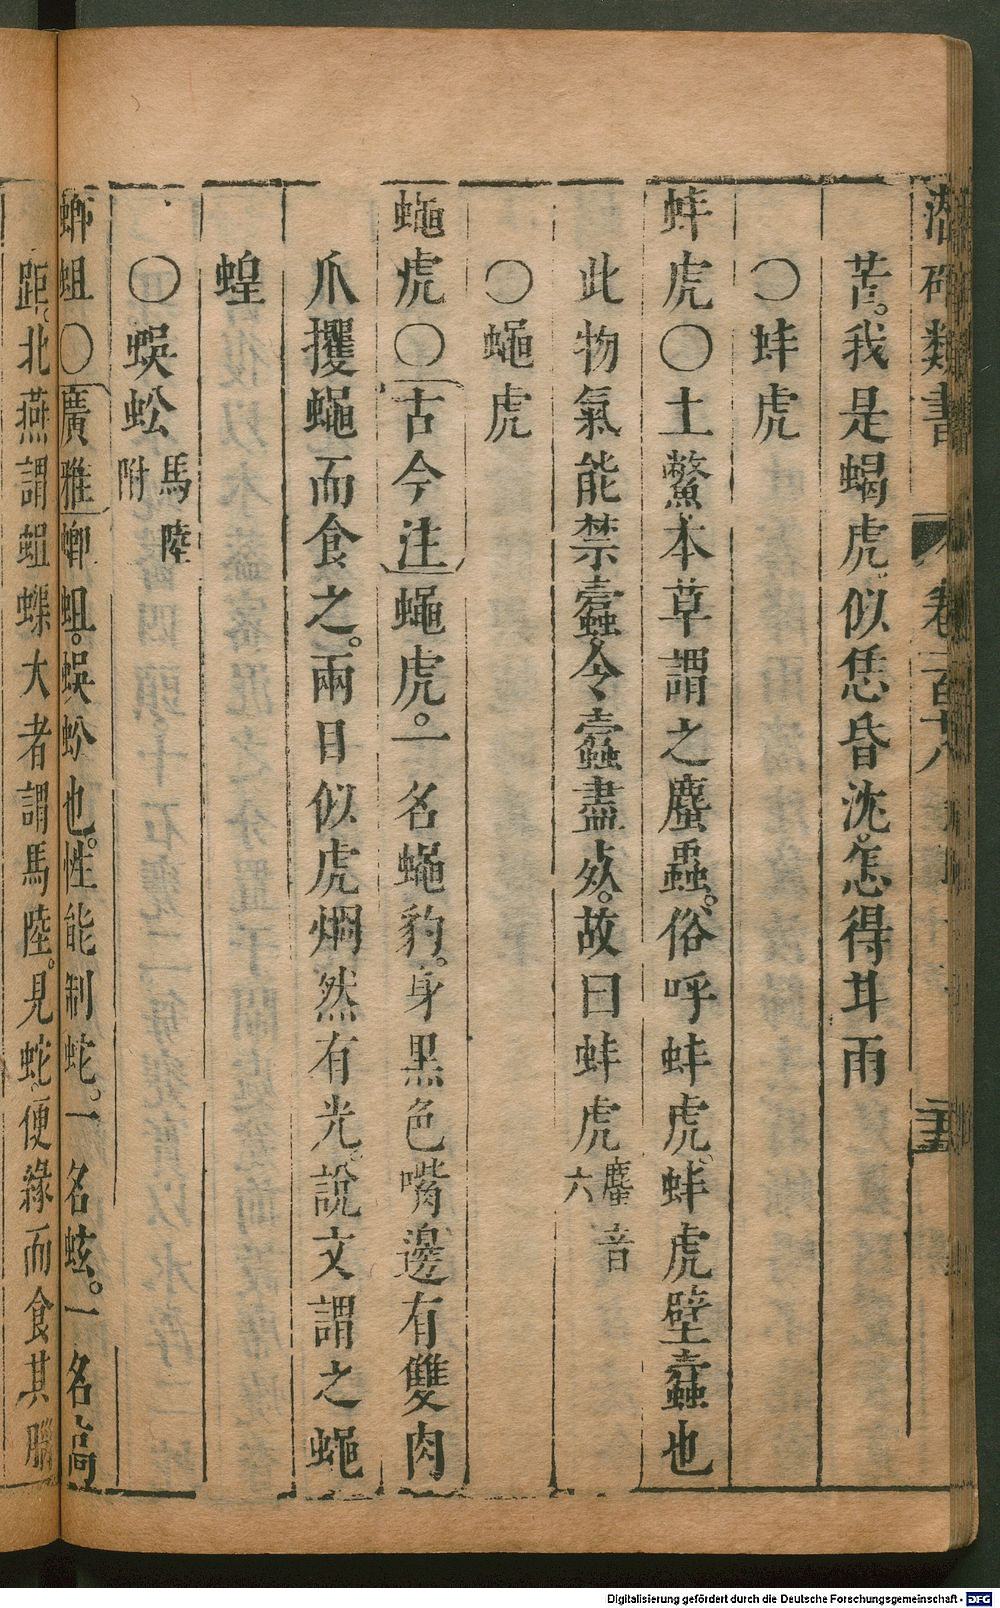 潛確類書 卷一百十八
苦。我是蝎虎。似恁昏沈。怎得甘雨
〇蚌虎
蚌虎〇土鱉本草謂之䗪蟲。俗呼蚌虎。蚌虎壁蠹也
此物氣能禁蠹。令蠹蟲盡死。故曰蚌虎䗪音六
〇蠅虎
蠅虎〇古今注蠅虎。一名蠅豹。身黑色嘴邊有雙肉
爪攫蠅而食之。兩目似虎炯然有光。說文謂之蠅
蝗
〇蜈蚣馬陸附
蝍蛆〇廣雅蝍蛆。蜈蚣也。性能制蛇。一名蚿。一名
距。北燕謂蛆蟝大者謂馬陸。見蛇。便緣而食其腦
Digitalisierung gefördert durch die Deutsche Forschungsgemeinschaft - DFG